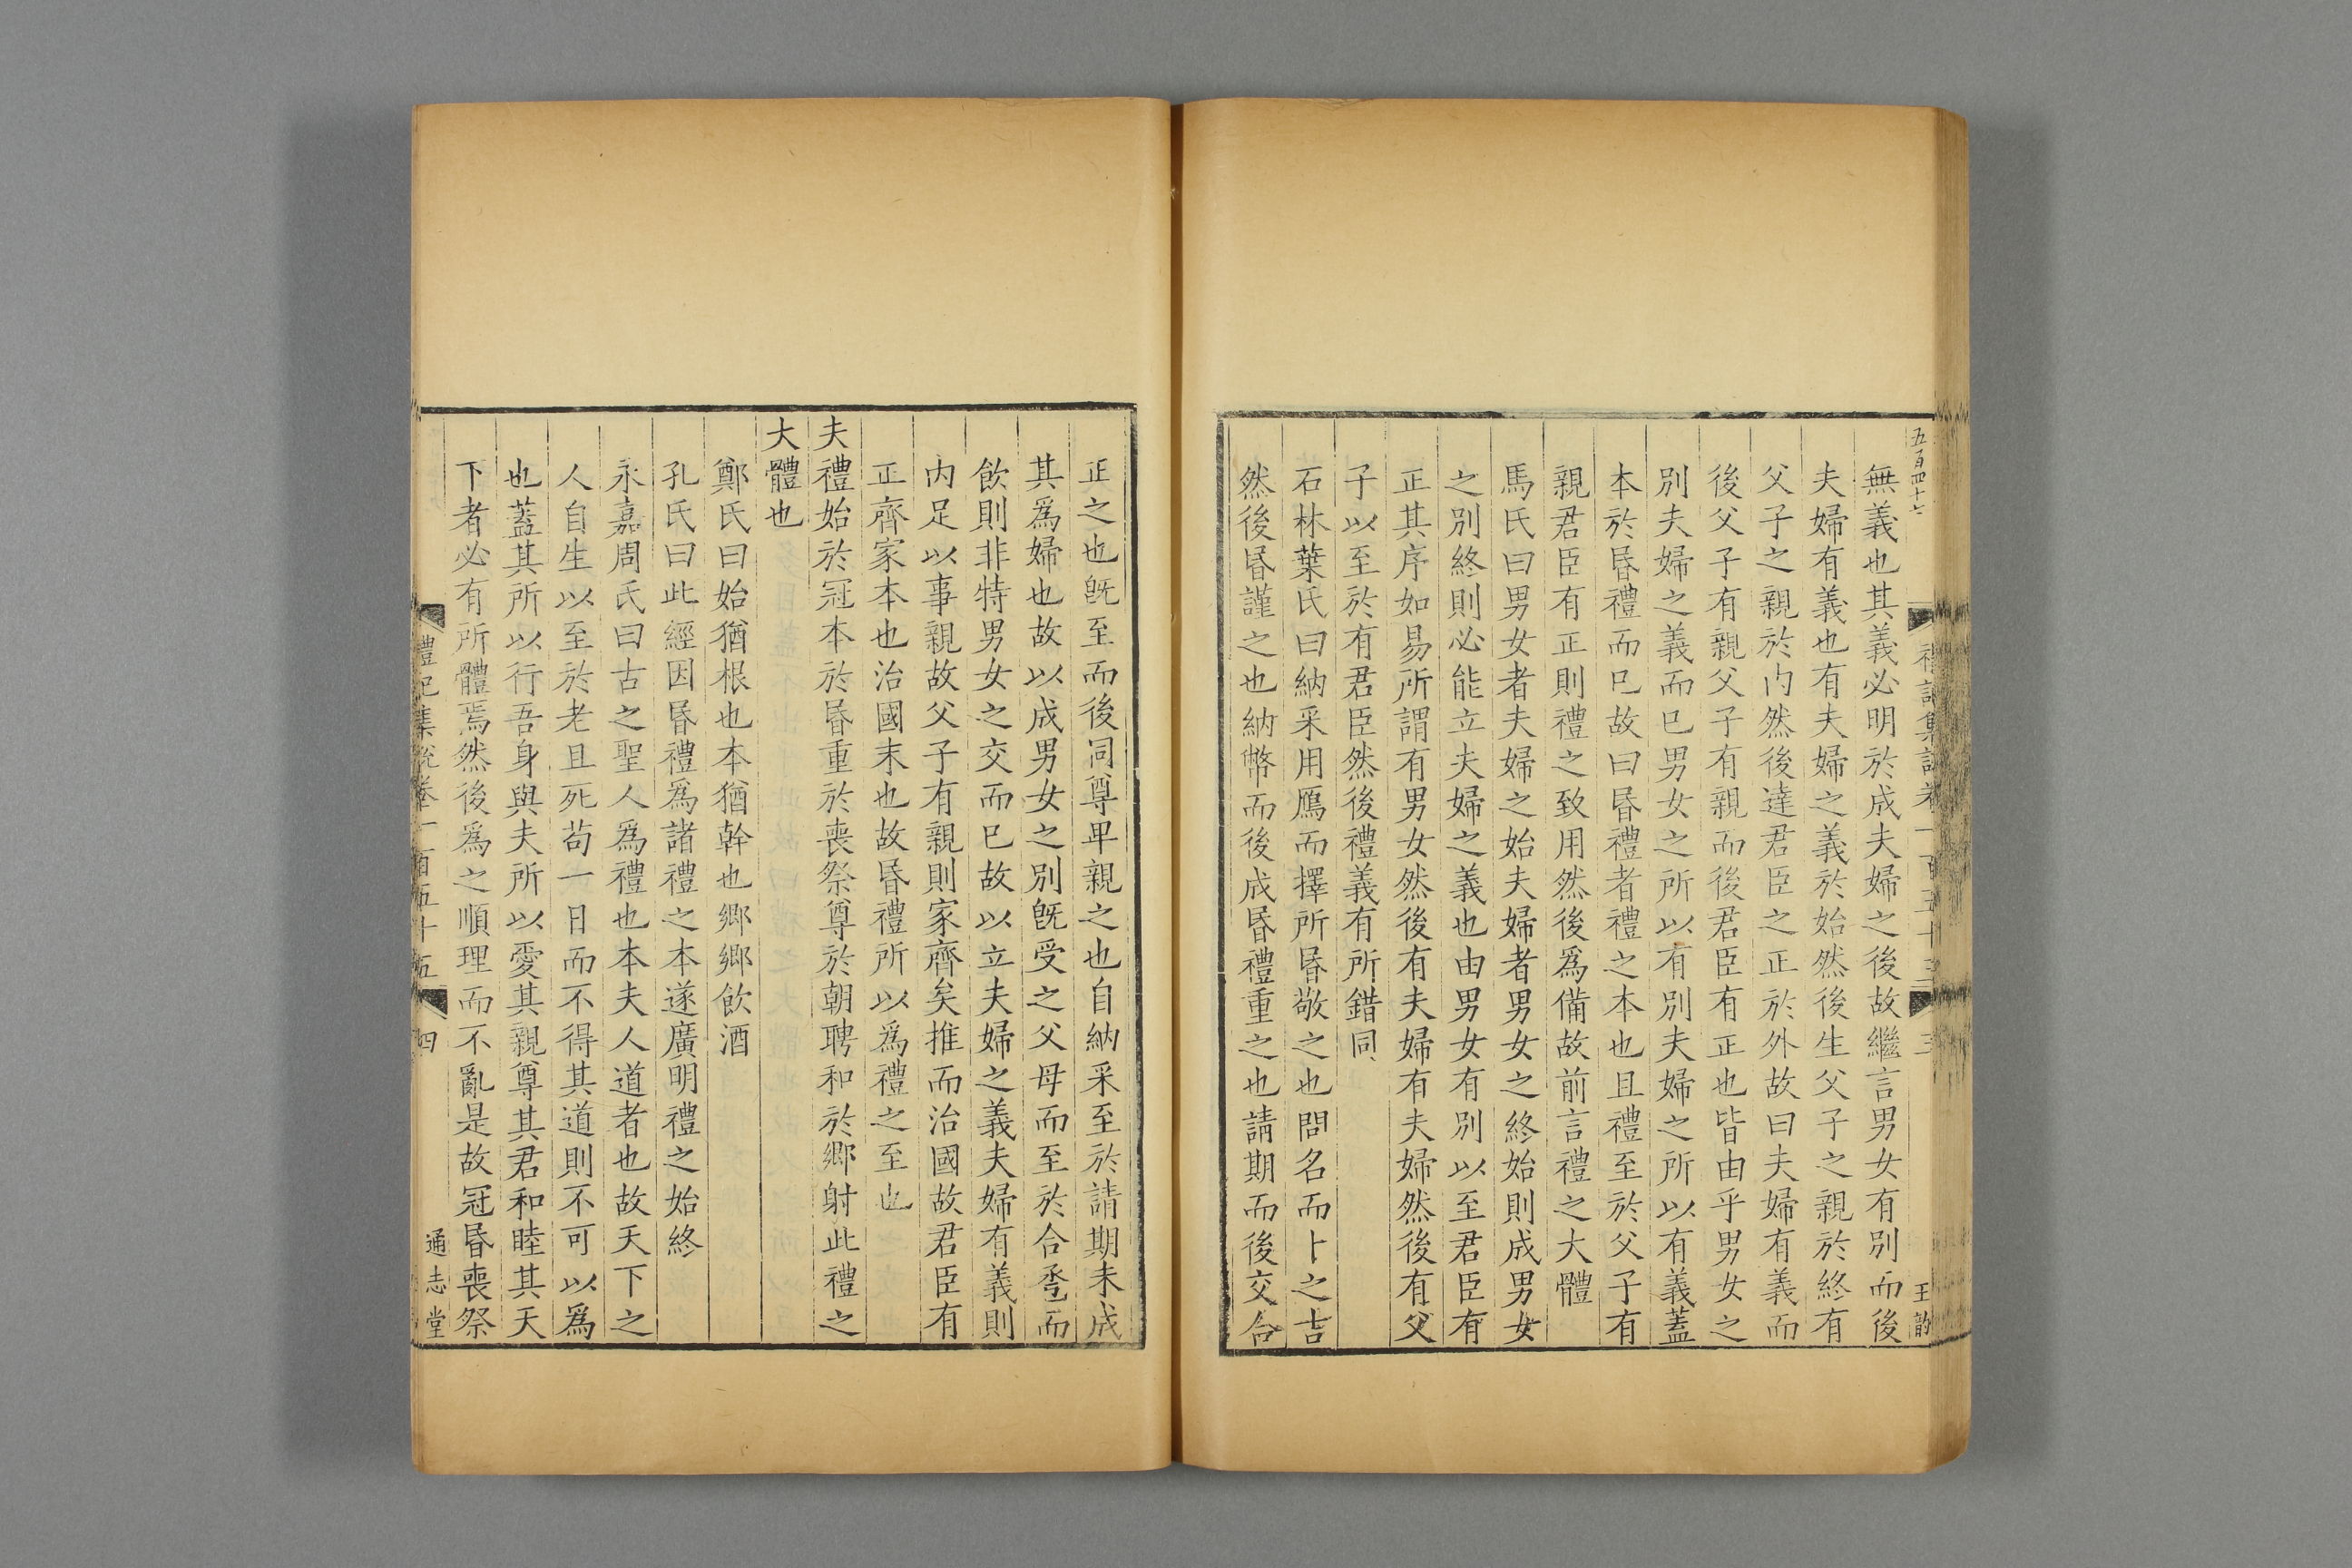 五百四十七
無義也其義必明於成夫婦之後故繼言男女有別而後
夫婦有義也有夫婦之義於始然後生父子之親於終有
父子之親於內然後達君臣之正於外故曰夫婦有義而
後父子有親父子有親而後君臣有正也皆由乎男女之
別夫婦之義而已男女之所以有別夫婦之所以有義蓋
本於昏禮而已故曰昏禮者禮之本也且禮至於父子有
親君臣有正則禮之致用然後爲備故前言禮之大體
馬氏曰男女者夫婦之始夫婦者男女之終始則成男女
之別終則必能立夫婦之義也由男女有別以至君臣有
正其序如易所謂有男女然後有夫婦有夫婦然後有父
子以至於有君臣然後禮義有所錯同
石林葉氏曰納采用鴈而擇所昏敬之也問名而卜之吉
然後昏謹之也納幣而後成昏禮重之也請期而後交合
正之也旣至而後同尊卑親之也自納采至於請期未成
其爲婦也故以成男女之別旣受之父母而至於合巹而
飲則非特男女之交而已故以立夫婦之義夫婦有義則
内足以事親故父子有親則家齊矣推而治國故君臣有
正齊家本也治國末也故昏禮所以爲禮之至也
夫禮始於冠本於昏重於喪祭尊於朝聘和於鄉射此禮之
大體也
鄭氏曰始猶根也本猶幹也鄉鄉飲酒
孔氏曰此經因昏禮爲諸禮之本遂廣明禮之始終
永嘉周氏曰古之聖人爲禮也本夫人道者也故天下之
人自生以至於老且死苟一日而不得其道則不可以爲
也蓋其所以行吾身與夫所以愛其親尊其君和睦其天
下者必有所體焉然後爲之順理而不亂是故冠昏喪祭
禮記集說卷一百五十五 四 通志堂